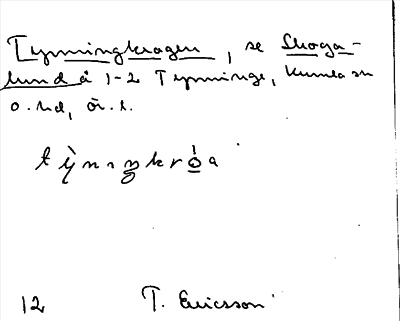 Tynningkrogen, se Skoga-
lund å 1-2 Tynninge, Kumla sn
o. hd, Ör. l.
tỳnıŋkròa
12 T. Ericsson